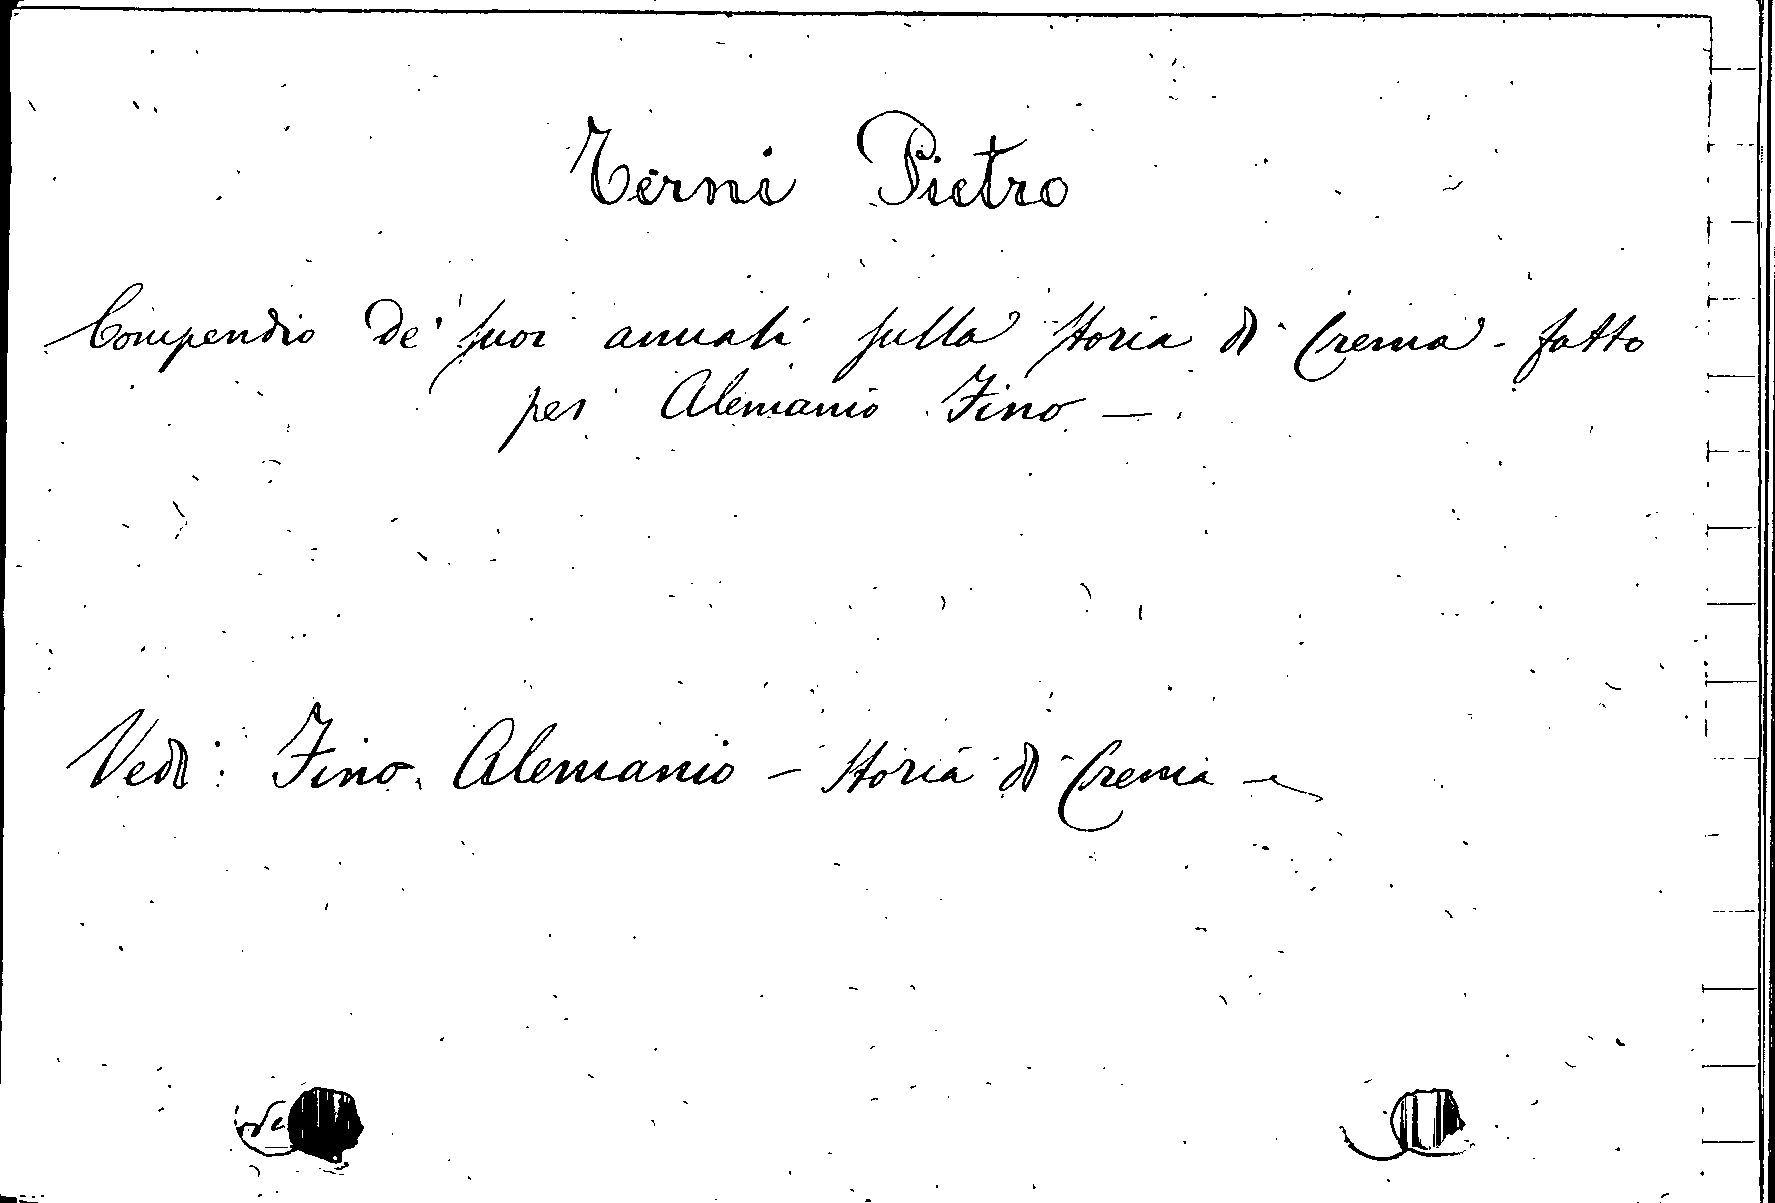 Terni Pietro
Compendio de' suoi annali sulla storia di Crema - fatto
per Alemanio Fino —
Vedi: Fino Alemanio - storia di Crema -